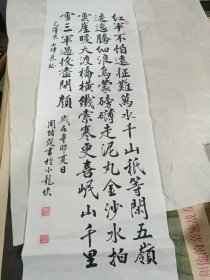 紅軍不怕遠征難萬水千山祇等閒五嶺
逶迤騰細浪烏蒙磅礴走泥丸金沙水拍
雲崖暖大渡橋橫鐵索寒更喜岷山千里
雪三軍過後盡開顏 歲在辛卯夏日
毛澤東七律長征 周緒 書於小龍坎